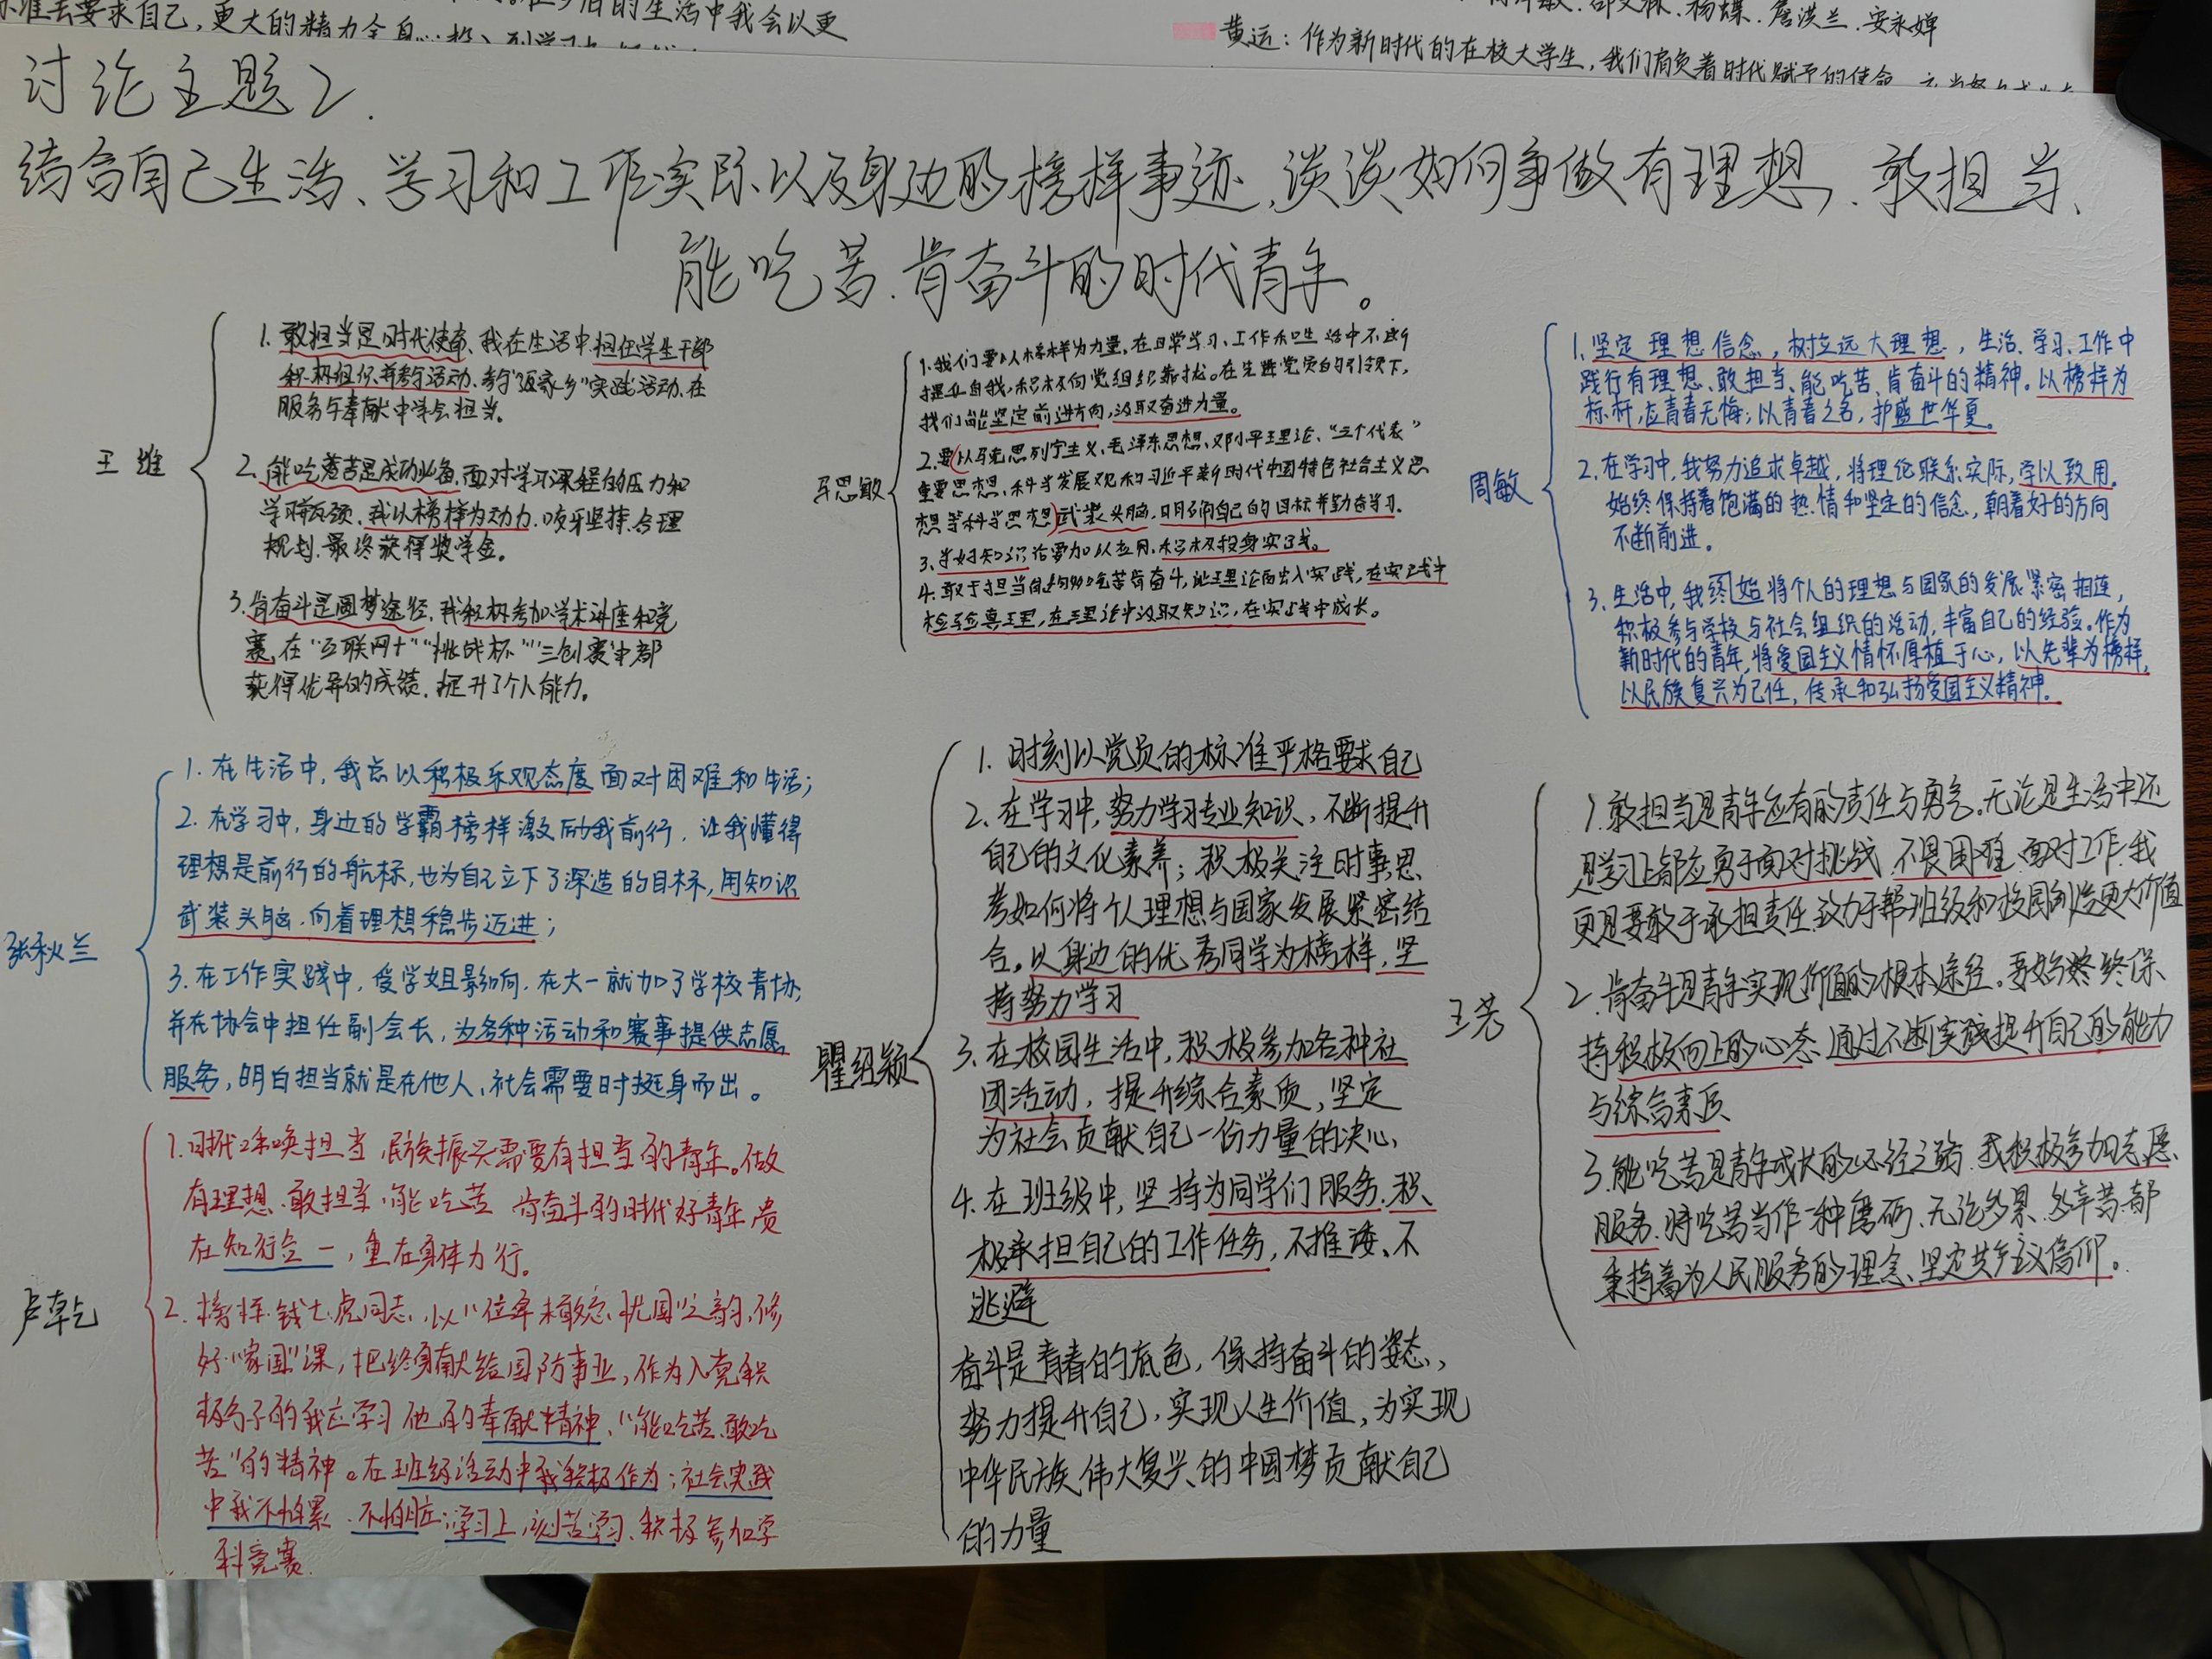 准去要求自己，更大的精力全身心投入到学习
的生活中我会以更
杨蝶、詹洪兰、安永婵
黄运：作为新时代的在校大学生，我们肩负着时代赋予的使命
讨论主题2.
结合自己生活、学习和工作实际以及身边的榜样事迹，谈谈如何争做有理想、敢担当、
能吃苦、肯奋斗的时代青年。
王维
1.敢担当是时代使命，我在生活中担任学生干部
积极组织并参与活动、参与“返家乡”实践活动、在
服务与奉献中学会担当。
2.能吃苦是成功必备，面对学习课程的压力和
学习瓶颈，我以榜样为动力，咬牙坚持、合理
规划，最终获得奖学金。
3.肯奋斗是圆梦途径，我积极参加学术讲座和竞
赛，在“互联网+”“挑战杯”“三创赛”中都
获得优异的成绩，提升了个人能力。
思敏
1.我们要以榜样为力量，在日常学习、工作和生活中不断
提升自我，积极向党组织靠拢。在先进党员的引领下，
我们能坚定前进方向，汲取奋进力量。
2.要以马克思列宁主义、毛泽东思想、邓小平理论、“三个代表”
重要思想、科学发展观和习近平新时代中国特色社会主义思
想等科学思想武装头脑，明确自己的目标并勤奋学习。
3.学好知识后要加以应用，积极投身实践。
4.敢于担当自找吃苦肯奋斗，让理论融入实践，在实践中
检验真理，在理论中汲取知识，在实践中成长。
周敏
1.坚定理想信念，树立远大理想，生活、学习、工作中
践行有理想、敢担当、能吃苦、肯奋斗的精神。以榜样为
标杆，应青春无悔；以青春之名，护盛世华夏。
2.在学习中，我努力追求卓越，将理论联系实际，学以致用。
始终保持着饱满的热情和坚定的信念，朝着好的方向
不断前进。
3.生活中，我终始将个人的理想与国家的发展紧密相连，
积极参与学校与社会组织的活动，丰富自己的经验。作为
新时代的青年，将爱国主义情怀厚植于心，以先辈为榜样，
以民族复兴为己任，传承和弘扬爱国主义精神。
张秋兰
1.在生活中，我总以积极乐观态度面对困难和生活；
2.在学习中，身边的学霸榜样激励我前行，让我懂得
理想是前行的航标，也为自己立下了深造的目标，用知识
武装头脑，向着理想稳步迈进；
3.在工作实践中，受学姐影响，在大一就加了学校青协，
并在协会中担任副会长，为各种活动和赛事提供志愿
服务，明白担当就是在他人、社会需要时挺身而出。
瞿纽颖
1.时刻以党员的标准严格要求自己
2.在学习中，努力学习专业知识，不断提升
自己的文化素养；积极关注时事，思
考如何将个人理想与国家发展紧密结
合。以身边的优秀同学为榜样，坚
持努力学习
3.在校园生活中，积极参加各种社
团活动，提升综合素质，坚定
为社会贡献自己一份力量的决心，
4.在班级中，坚持为同学们服务，积
极承担自己的工作任务，不推诿、不
逃避
奋斗是青春的底色，保持奋斗的姿态，
努力提升自己，实现人生价值，为实现
中华民族伟大复兴的中国梦贡献自己
的力量
王芳
1.敢担当是青年应有的责任与勇气，无论是生活中还
是学习上都应勇于面对挑战，不畏困难，面对工作，我
更是要敢于承担责任，致力于帮班级和校园创造更大价值
2.肯奋斗是青年实现价值的根本途径，要始终保
持积极向上的心态，通过不断实践提升自己的能力
与综合素质
3.能吃苦是青年成长的必经之路，我积极参加志愿
服务，将吃苦当作一种磨砺，无论多累、多辛苦都
秉持着为人民服务的理念、坚定共产主义信仰。
卢乾
1.时代呼唤担当，民族振兴需要有担当的青年。做
有理想、敢担当、能吃苦、肯奋斗的时代好青年，贵
在知行合一，重在身体力行。
2.榜样：钱七虎同志，以“位卑未敢忘忧国”之韵，修
好“家国”课，把终身献给国防事业，作为入党积
极分子的我应学习他的奉献精神、“能吃苦、敢吃
苦”的精神。在班级活动中我积极作为；社会实践
中我不怕累、不怕脏；学习上，刻苦学习、积极参加学
科竞赛.